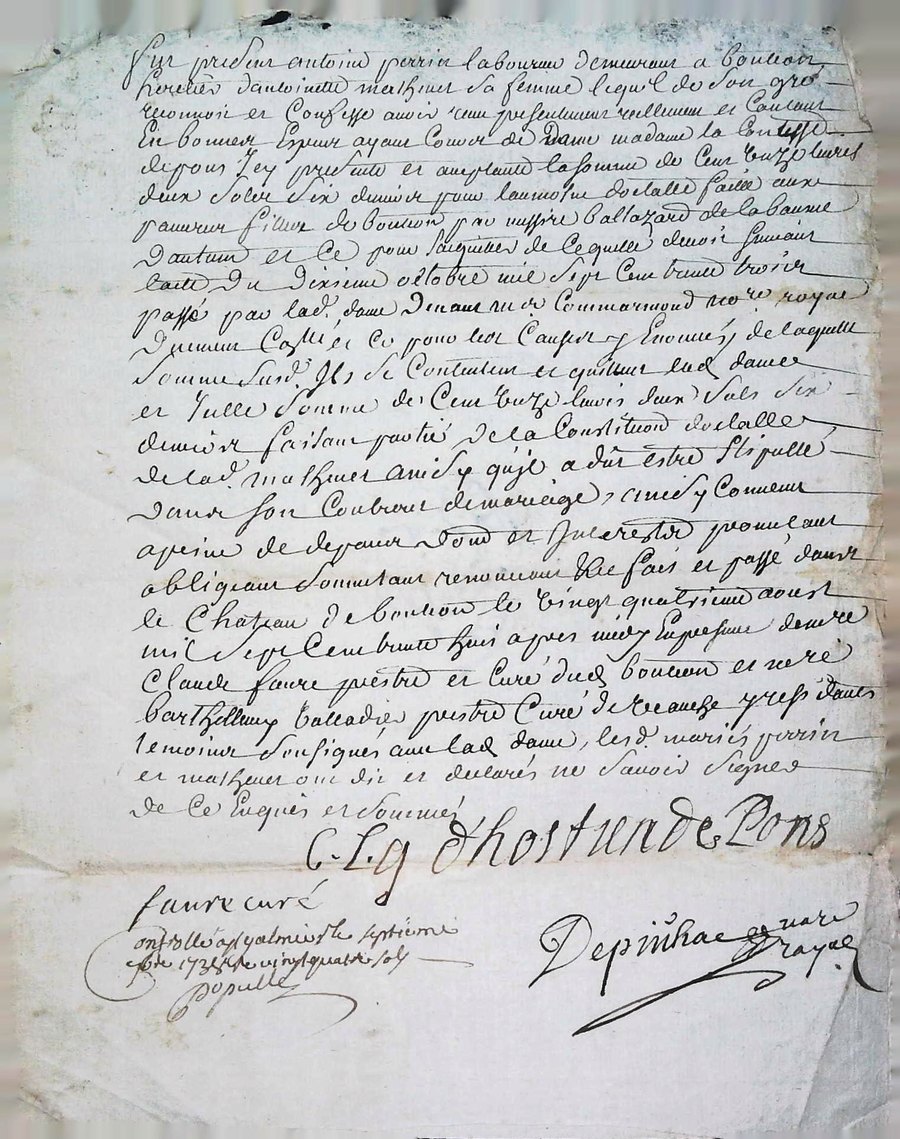 Fut present antoine perrin laboureur demeurant a bouteon
heretier dantoinette mathieu sa femme lequel de son gre
reconnoit et Confesse avoir receu presentement reellement et Contant
En bonnes Especes ayant Cours de Dame madame la Contesse
de pons Icy presente et aceptante la somme de Cent Unze livres
deux Sols Six deniers pour laumosne dotalle faitte aux
pauvres filles de bouteon par messire baltazard de la baume
Dautun et Ce pour Saquitter de Ce quelle devoit Suivant
lacte Du Dixieme octobre mil Sept Cent trente trois
passé par lad. dame Devant me Commarmond nore royal
et Ce pour les Causes y Enoncées de laquelle
Somme Susd. Ils Se Contentent et quittent lad dame
et Telle Somme de Cent Unze livres deux Sols Six
deniers faisant partie De la Constitution dotalle
de lad. mathieu ainsy quil a dit estre Stipullé
Dans Son Contract de mariage, ainsy Convenu
a peine de depens Dom et Interests promettant
obligeant Soumettant renonceant &c fais et passé dans
le Chateau de bouteon le Vingt quatrieme aoust
mil Sept Cent trente huit apres midy En presence de mre
Claude faure prestre et Curé dud bouteon et mre
barthellemy Valladier prestre Curé de
temoins Sousignés avec lad dame, lesd. mariés perrin
et mathieu ont dit et declarés ne Savoir Signer
de Ce Enquis et Sommés
C. L. g d'hostun de Pons
faure curé
Depinhac nore
royal
ontrollé a st galmier le septieme
7bre 1738 Re vingt quatre sols
Populle